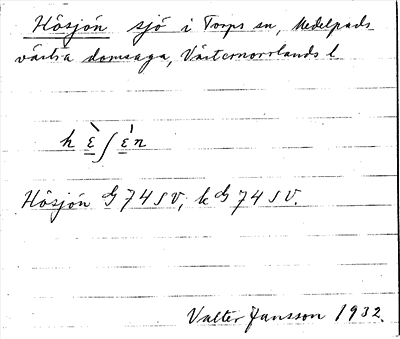 Hösjön sjö i Torps sn, Medelpads
västra domsaga, Västernorrlands l
h ɛ̀ ʃ ɛ́ n
Hösjön G 74 SV, k G 74 SV.
Valter Jansson 1932.